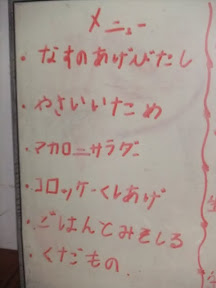 メニュー
・なすのあげびたし
・やさいいため
・マカロニサラダ
・コロッケーくしあげ
・ごはんてみそしる
・くだもの